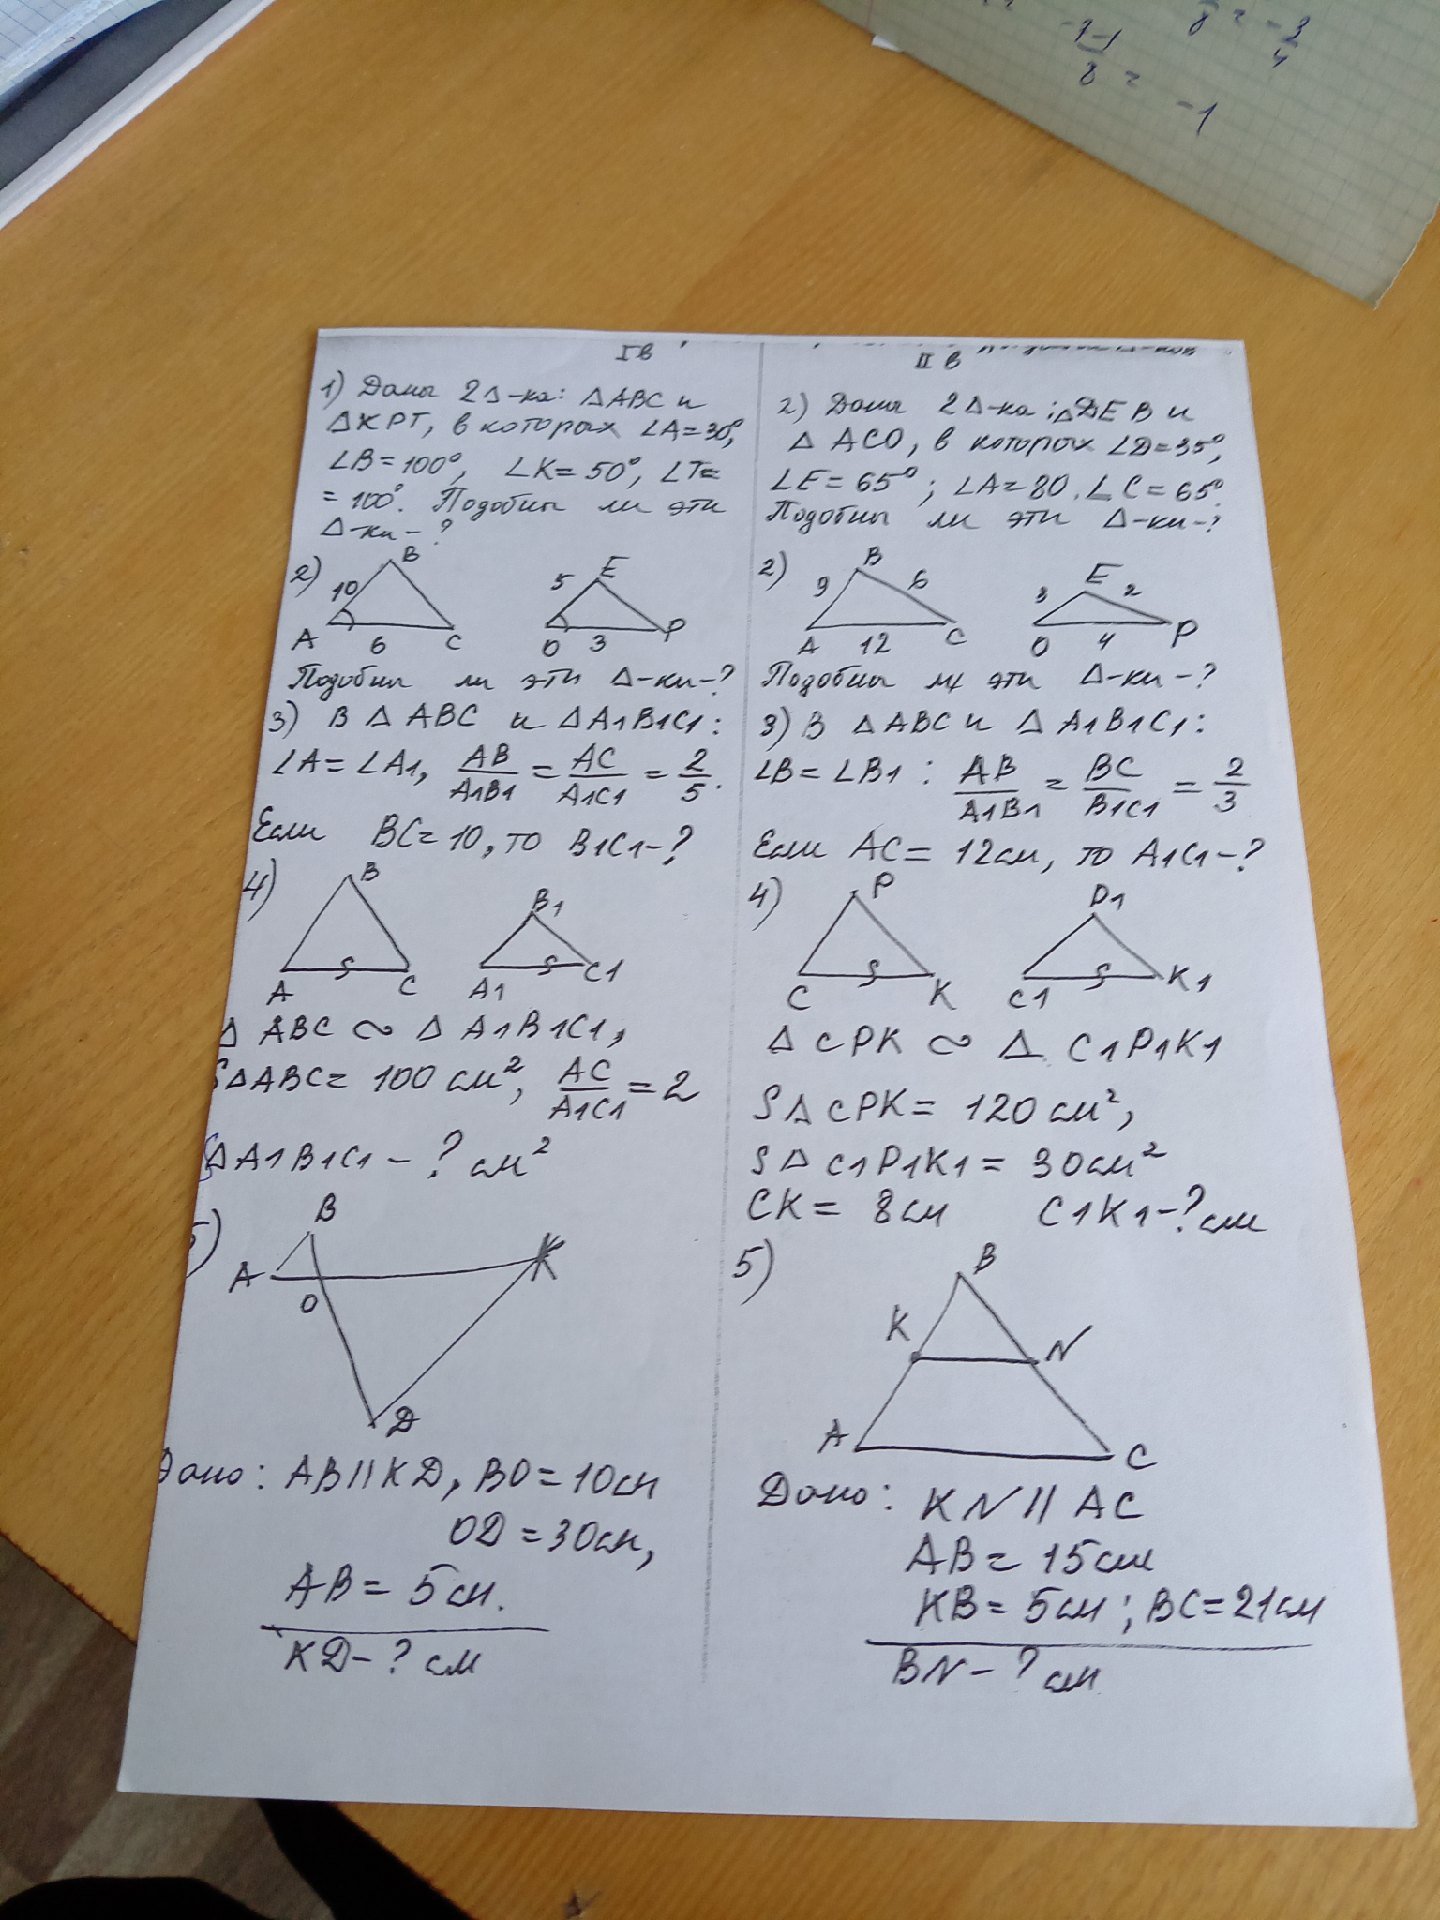 8 = - 3
4
8 = -1
I в
1) Даны 2 Δ-ка: Δ ABC и
Δ KPT, в которых ∠A = 30°,
∠B = 100°, ∠K = 50°, ∠T =
= 100°. Подобны ли эти
Δ-ки - ?
2)
B
10
A 6 C
E
5
O 3 P
Подобны ли эти Δ-ки - ?
3) В Δ ABC и Δ A1B1C1:
∠A = ∠A1, AB/A1B1 = AC/A1C1 = 2/5.
Если BC = 10, то B1C1 - ?
4)
B
A S C
B1
A1 S C1
Δ ABC ∾ Δ A1B1C1,
SΔABC = 100 см², AC/A1C1 = 2
SΔA1B1C1 - ? см²
5)
B
A K
O
D
Дано: AB || KD, BO = 10 см
OD = 30 см,
AB = 5 см.
KD - ? см
II в
2) Даны 2 Δ-ка: Δ DEB и
Δ ACO, в которых ∠D = 35°,
∠E = 65°; ∠A = 80. ∠C = 65°.
Подобны ли эти Δ-ки - ?
2)
B
9 6
A 12 C
E
3 2
O 4 P
Подобны ли эти Δ-ки - ?
3) В Δ ABC и Δ A1B1C1:
∠B = ∠B1: AB/A1B1 = BC/B1C1 = 2/3
Если AC = 12 см, то A1C1 - ?
4)
P
C S K
P1
C1 S K1
Δ CPK ∾ Δ C1P1K1
SΔ CPK = 120 см²,
SΔ C1P1K1 = 30 см²
CK = 8 см C1K1 - ? см
5)
B
K N
A C
Дано: KN || AC
AB = 15 см
KB = 5 см; BC = 21 см
BN - ? см